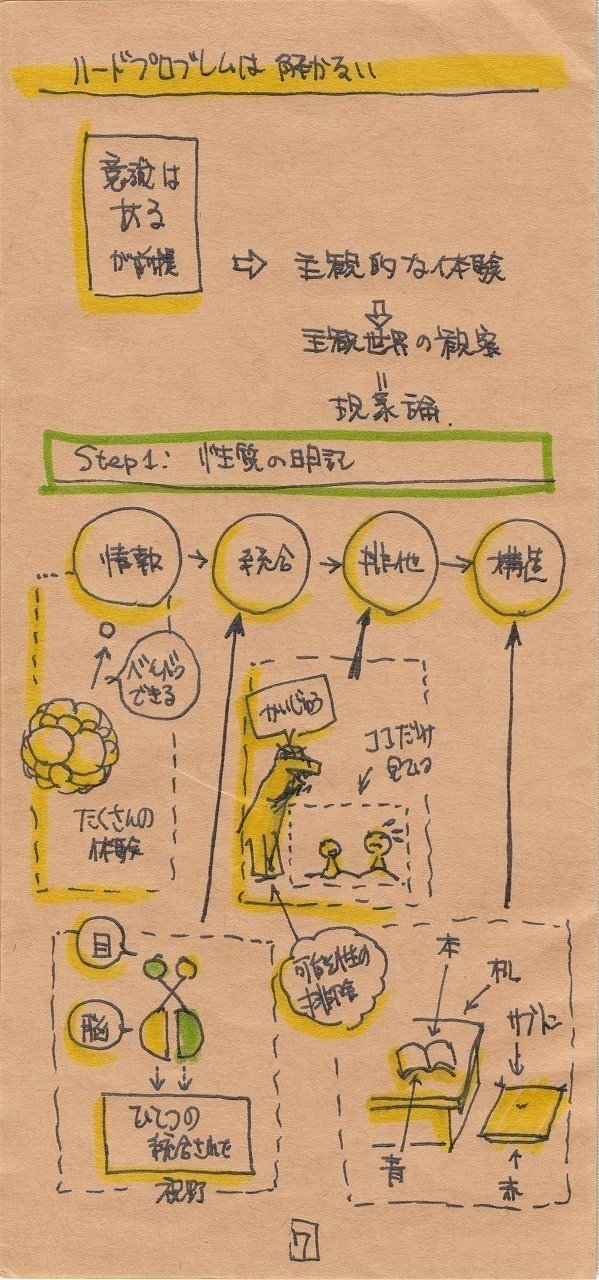 ハードプロブレムは解かるい
意識は
ある
が前提
主観的な体験
主観世界の観察
現象論.
Step1: 性質の明記
…
情報
統合
排他
構造
べんべつ
できる
かいじゅう
ココだけ
見ている
たくさんの
体験
目
脳
可能性の
排除
本
机
ザブトン
ひとつの
統合された
視野
青
赤
7